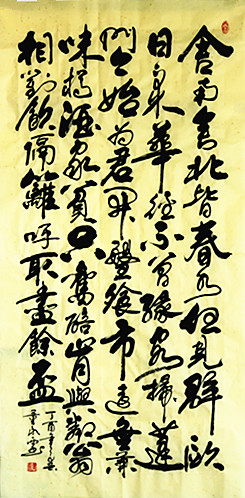 舍南舍北皆春水但見群鷗
日日來華徑不曾緣客掃蓬
門今始為君開盤飧市遠無兼
味樽酒家貧只舊醅肯與鄰翁
相對飲隔籬呼取盡餘盃
丁酉年